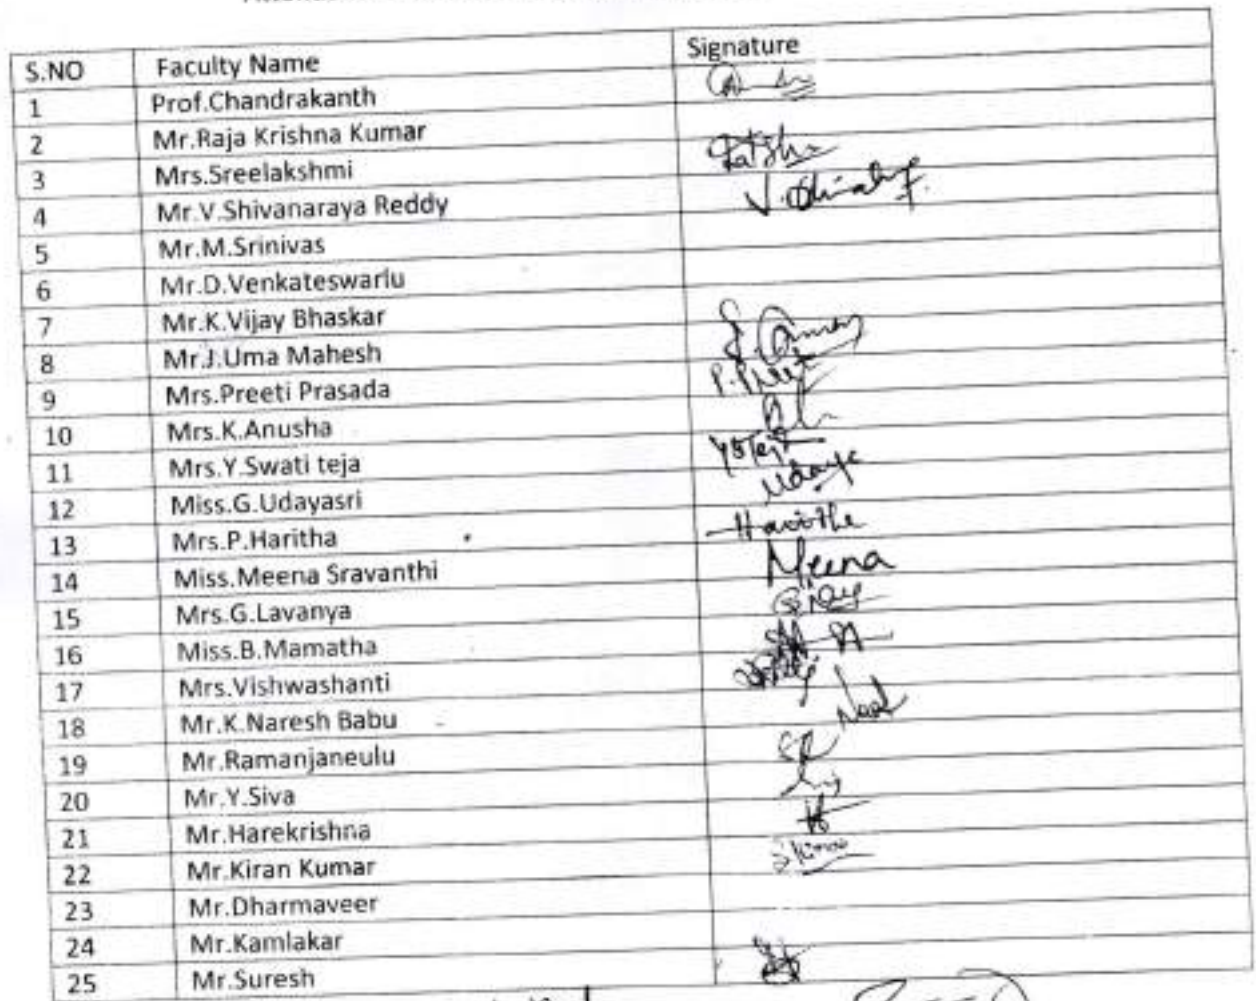 S.NO Faculty Name Signature
1 Prof.Chandrakanth
2 Mr.Raja Krishna Kumar
3 Mrs.Sreelakshmi
4 Mr.V.Shivanaraya Reddy
5 Mr.M.Srinivas
6 Mr.D.Venkateswarlu
7 Mr.K.Vijay Bhaskar
8 Mr.J.Uma Mahesh
9 Mrs.Preeti Prasada
10 Mrs.K.Anusha
11 Mrs.Y.Swati teja
12 Miss.G.Udayasri
13 Mrs.P.Haritha Haritha
14 Miss.Meena Sravanthi Meena
15 Mrs.G.Lavanya
16 Miss.B.Mamatha
17 Mrs.Vishwashanti
18 Mr.K.Naresh Babu
19 Mr.Ramanjaneulu
20 Mr.Y.Siva
21 Mr.Harekrishna
22 Mr.Kiran Kumar
23 Mr.Dharmaveer
24 Mr.Kamlakar
25 Mr.Suresh